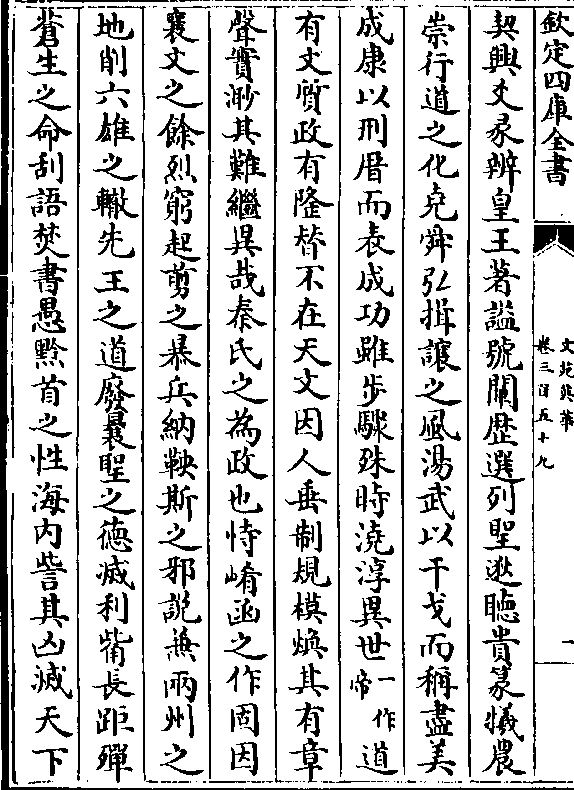 欽定四庫全書
文苑英華
卷三百五十九
一
契興爻彖辨皇王著謚號闡歴選列聖逖聽貴篆犧農
崇行道之化堯舜弘揖讓之風湯武以干戈而稱盡美
成康以刑厝而表成功雖步驟殊時澆淳異世一作帝道
有文質政有隆替不在天文因人垂制規模煥其有章
聲實渺其難繼異哉秦氏之為政也恃崤函之作固因
襄文之餘烈窮起剪之暴兵納鞅斯之邪説兼兩州之
地削六雄之轍先王之道廢曩聖之德滅利觜長距殫
蒼生之命刮語焚書愚黔首之性海内訾其凶滅天下